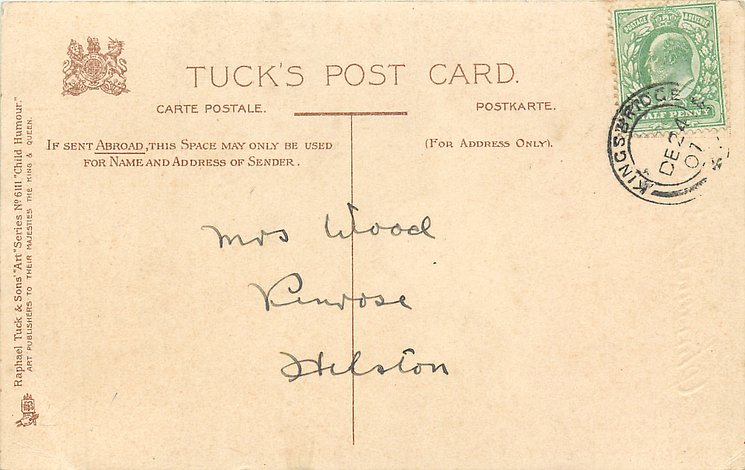 TUCK'S POST CARD.
CARTE POSTALE.
POSTKARTE.
IF SENT ABROAD, THIS SPACE MAY ONLY BE USED
FOR NAME AND ADDRESS OF SENDER.
(FOR ADDRESS ONLY).
POSTAGE & REVENUE
HALF PENNY
KINGSBRIDGE
DE 24
07
Mrs Wood
Penrose
Helston
Raphael Tuck & Sons' "Art" Series No 6111 "Child Humour."
ART PUBLISHERS TO THEIR MAJESTIES THE KING & QUEEN.